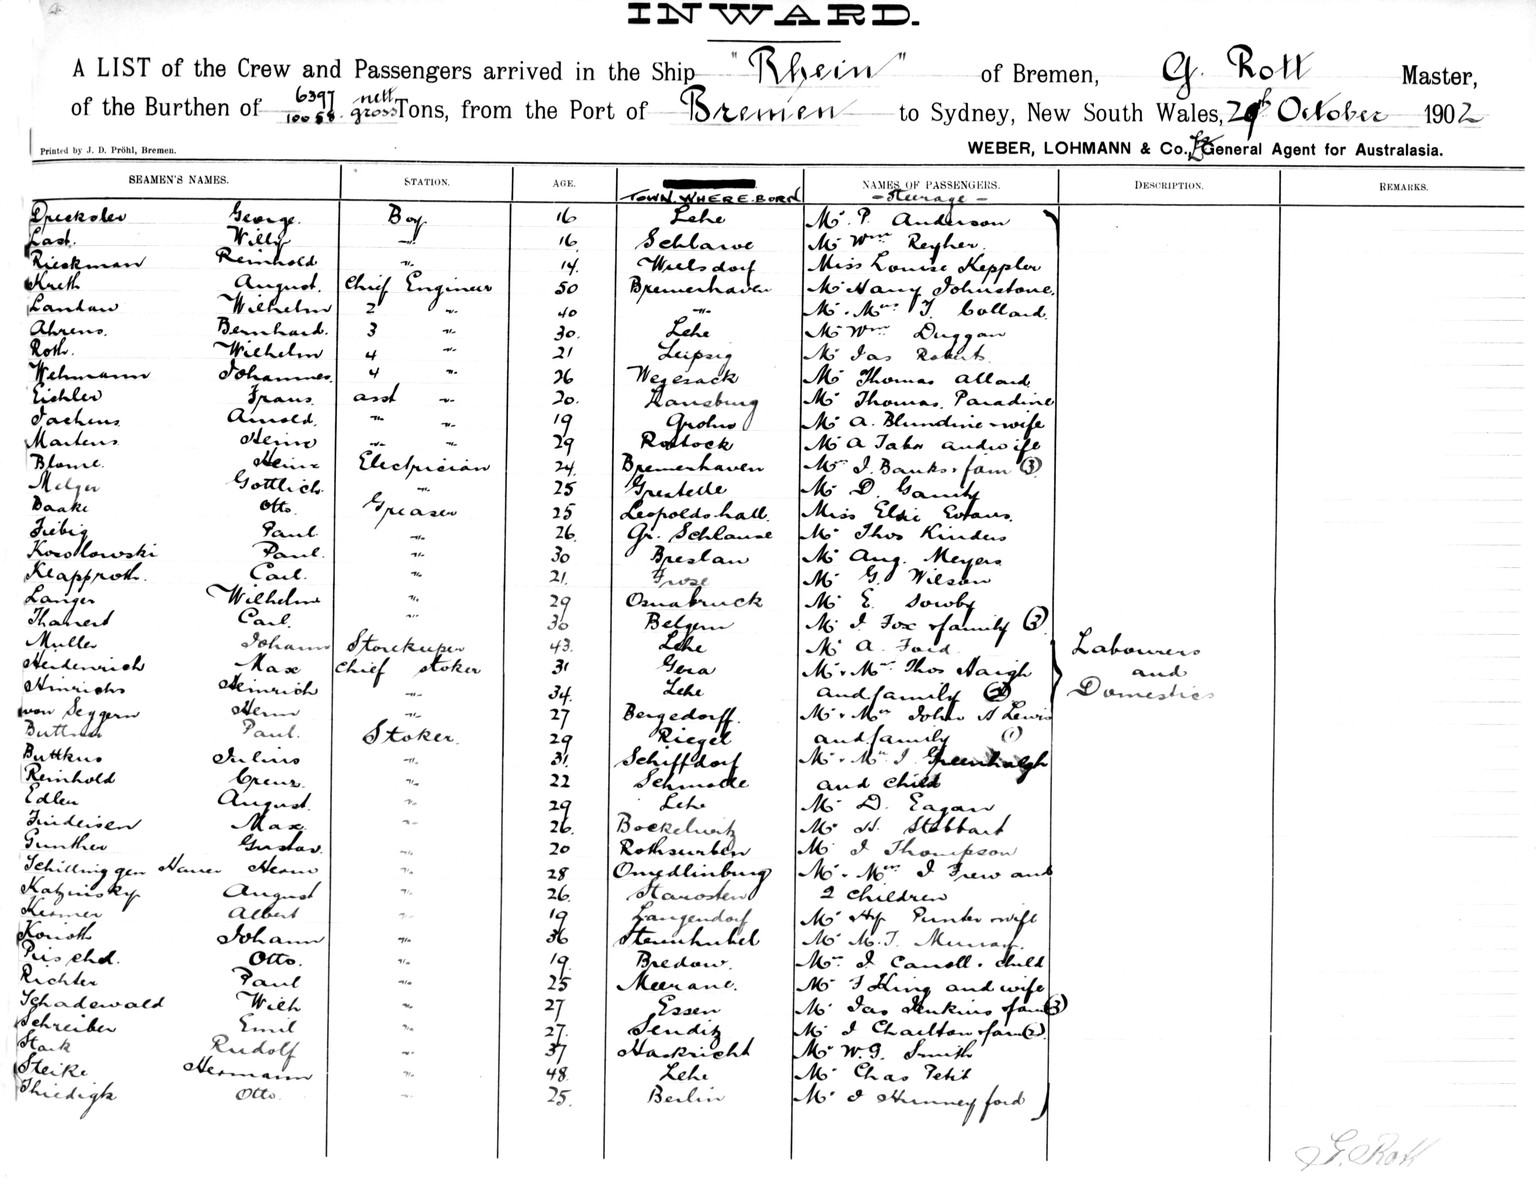 INWARD.
A LIST of the Crew and Passengers arrived in the Ship "Rhein" of Bremen, G. Rott Master,
of the Burthen of 6397 nett 10058 gross Tons, from the Port of Bremen to Sydney, New South Wales, October 1902
Printed by J. D. Pröhl, Bremen. WEBER, LOHMANN & Co., General Agent for Australasia.
SEAMEN'S NAMES. STATION. AGE. TOWN WHERE BORN NAMES OF PASSENGERS. DESCRIPTION. REMARKS.
- Steerage -
George. Boy 16 Lehe Mr P. Anderson
Last. Willy -"- 16 Schlawe Mr Wm Reyher.
Rieckman Reinhold -"- 14. Wulsdorf Miss Louise Keppler
Kreth August. Chief Engineer 50 Bremerhaven Mr Harry Johnstone.
Landau Wilhelm 2 -"- 40 -"- Mr & Mrs T. Collard.
Ahrens. Bernhard. 3 -"- 30. Lehe Mr Wm Duggan
Roth. Wilhelm 4 -"- 21 Leipzig Mr Jas Robert.
Wehmann Johannes. 4 -"- 26 Wegesack Mr Thomas Allard
Eichler Franz. asst -"- 20. Mr Thomas Paradine
Jachens Arnold. -"- -"- 19 Grohn Mr A. Blundine & wife
Martens Heinr -"- -"- 29 Rostock Mr A Tabor and wife
Blome. Heinr Electrician 24. Bremerhaven Mr J. Banks & fam (3)
Gottlieb. -"- 25 Mr D.
Baake Otto. Greaser 25 Leopoldshall. Miss Elsie Evans.
Fiebig Paul. -"- 26. Gr. Schlause Mr Thos Kinders
Kosolowski Paul. -"- 30 Breslau Mr Aug. Meyers
Klapproth. Carl. -"- 21. Frose Mr G. Wilson
Langer Wilhelm -"- 29 Osnabruck Mr E. Sowby
Thanert Carl. -"- 30 Belgern Mr J. Fox & family (3)
Muller Johann Storekeeper 43. Lehe Mr A. Ford. Labourers
Heidenrich Max Chief stoker 31 Gera Mr & Mrs Thos Haigh and
Hinrichs Heinrich -"- 34. Lehe and family Domestics
von Seggern Herm -"- 27 Bergedorff. Mr & Mrs John A Lewis
Paul. Stoker. 29 Riegel and family (1)
Buttkus Julius -"- 31. Schiffdorf Mr & Mrs J Greenhalgh
Reinhold Creuz. -"- 22 and child
Edler August. -"- 29 Lehe Mr D. Eagan
Findeisen Max. -"- 26. Bockelwitz Mr H. Stobbart
Gunther Gustav. -"- 20 Rothsurben Mr J Thompson
Herm -"- 28 Omedlinburg Mr & Mrs J Frew and
Katzinsky August -"- 26. Starosten 2 children
Albert -"- 19 Langendorf Mr Hy Punter & wife
Korioth Johann -"- 36 Sternhubel Mr M.T. Murray.
Otto. -"- 19. Bredow. Mrs J Carroll & child
Richter Paul -"- 25 Meerane. Mr F King and wife
Schadewald Wilh -"- 27 Essen Mr Jas Jenkins & fam (3)
Schreiber Emil -"- 27. Senditz Mr J Charlton & fam (2).
Stark Rudolf -"- 37 Haskricht Mr W.G. Smith
Steike Hermann -"- 48. Lehe Mr Chas Petit
Thiedigk Otto. -"- 25. Berlin Mr J Hunneyford
G. Rott